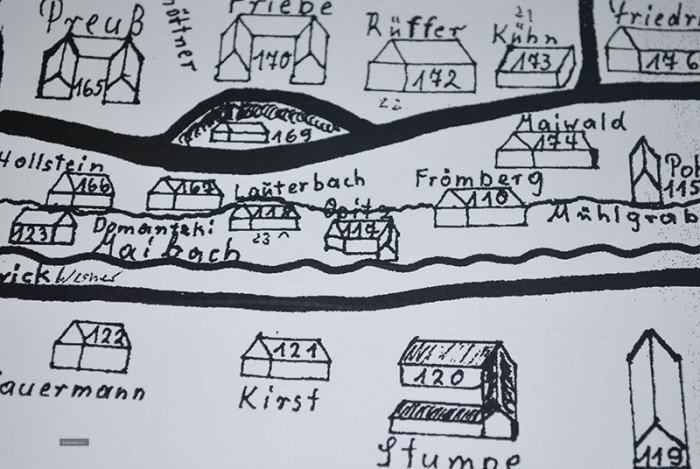 Preuß
165
Friebe
170
Rüffer
172
22
21
Kühn
173
Friedri
176
169
Maiwald
174
Hollstein
166
167
Lauterbach
118
23
Opitz
117
Frömberg
116
Pol
115
Mühlgrab
123
Domanski
Maibach
rick
122
auermann
121
Kirst
120
Stumpe
119